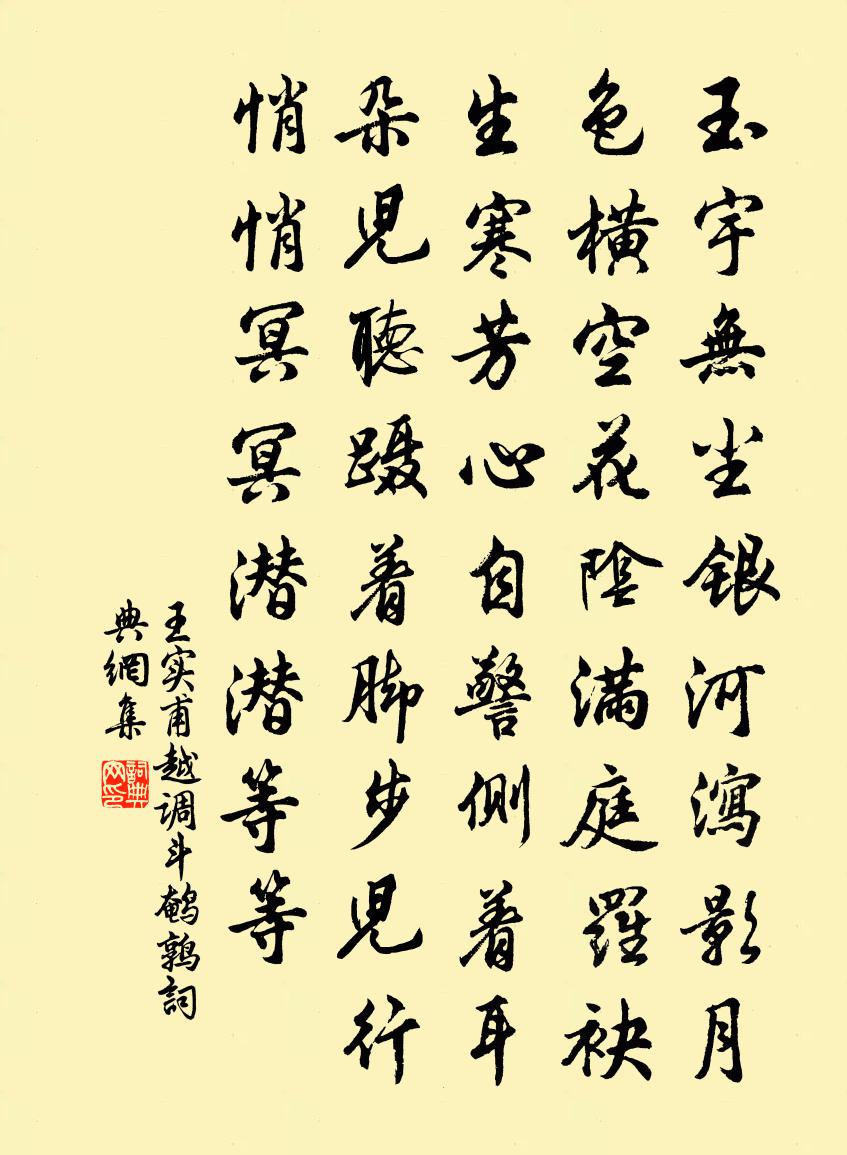 玉宇無尘銀河瀉影月
色橫空花陰滿庭羅袂
生寒芳心自警側着耳
朵児聴蹑着脚步児行
悄悄冥冥潜潜等等
王实甫越调斗鹌鹑詞
典網集
詞典网印